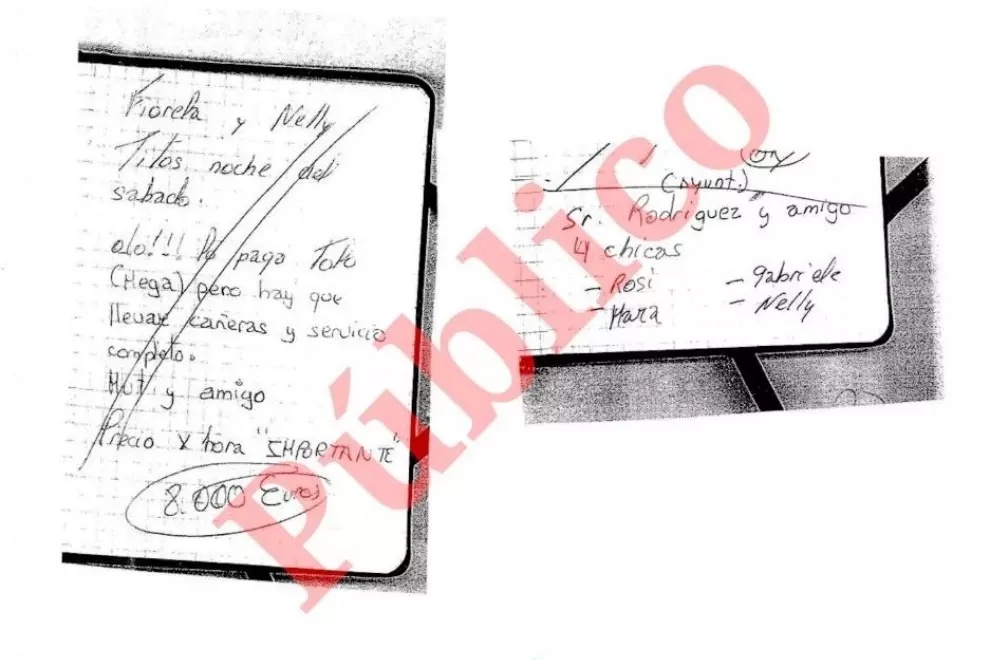 Fiorela y Nelly
Titos noche del
sabado.
ojo!!! lo paga Tolo
(Mega) pero hay que
llevar cañeras y servicio
completo.
Mut y amigo
Precio x hora "IMPORTANTE"
8.000 Euros
(Ayunt.)
Sr. Rodriguez y amigo
4 chicas
- Rosi - Gabriele
- Mara - Nelly
Público